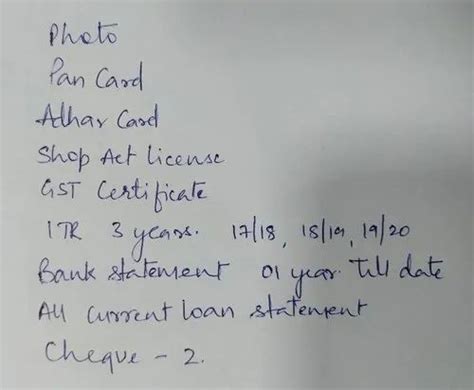 Photo
Pan Card
Adhar Card
Shop Act license
GST Certificate
ITR 3 years. 17/18, 18/19, 19/20
Bank statement 01 year. Till date
All current loan statement
Cheque - 2.